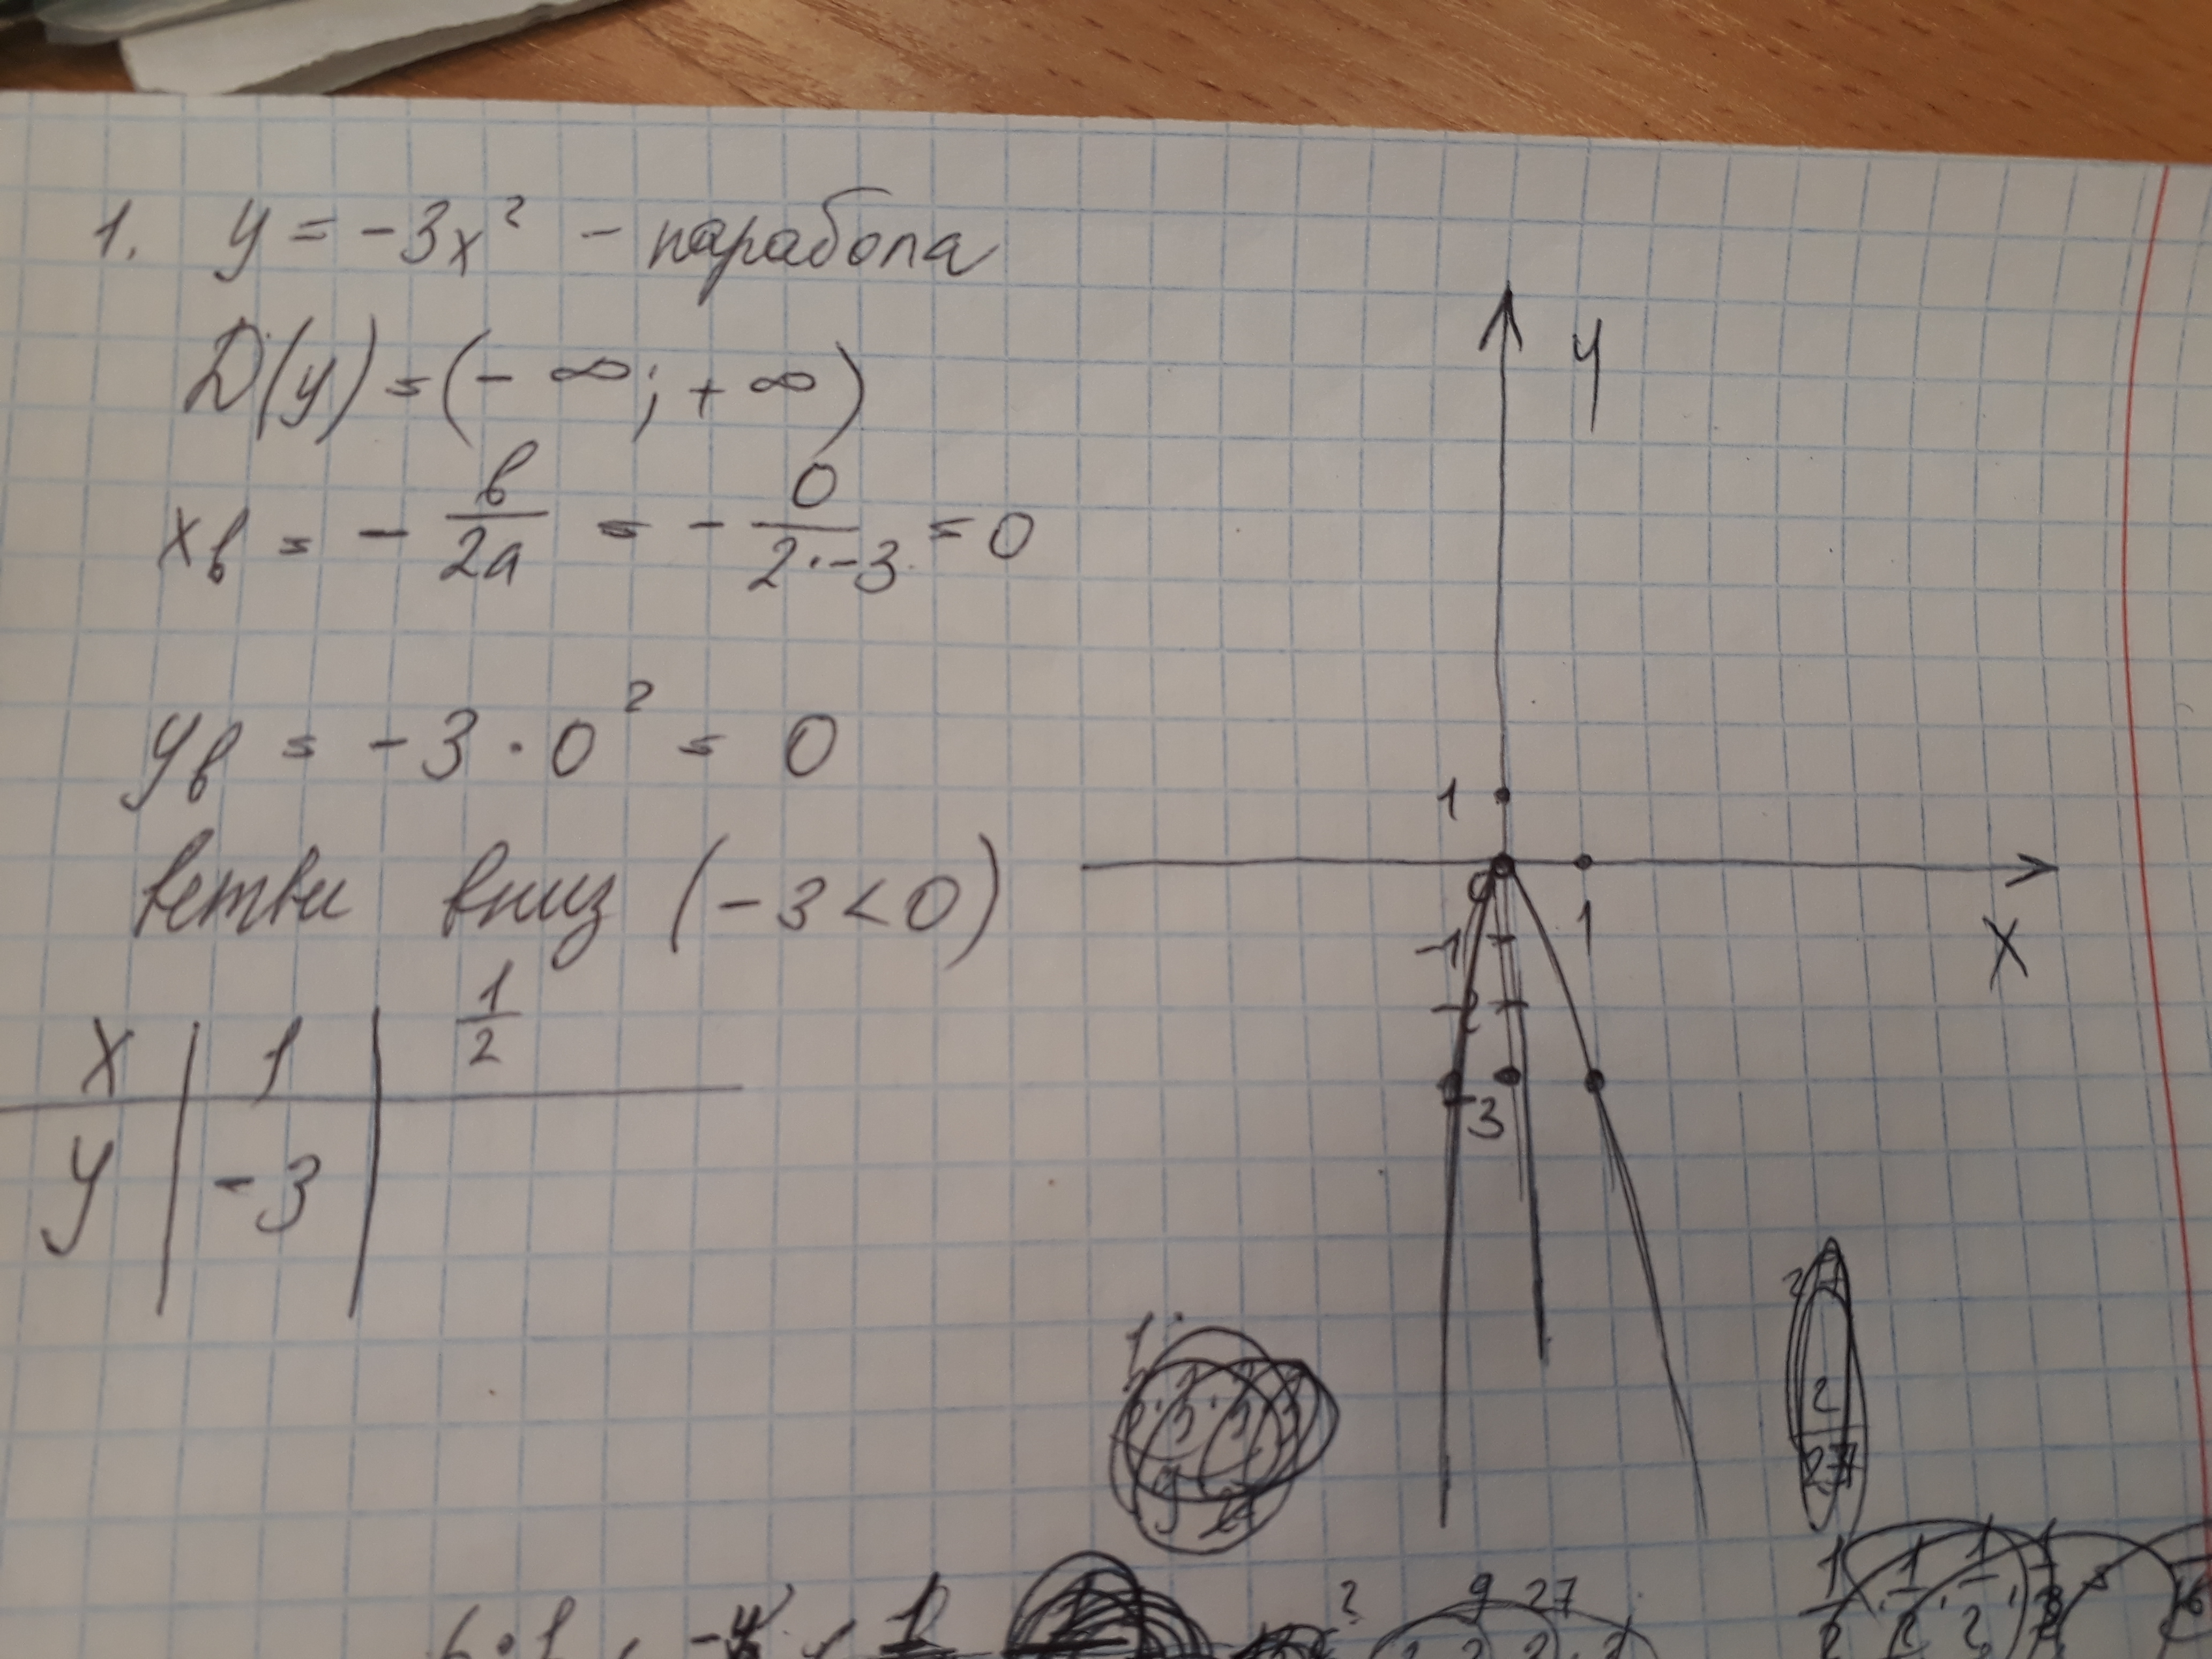 1. y = -3x² - парабола
D(y) = (-∞; +∞)
xв = - в/2а = - 0/2·-3 = 0
yв = -3 · 0² = 0
ветви вниз (-3 < 0)
x | 1 | 1/2
y | -3 |
y
1
0
1
x
-1
-2
-3
2
27
9 27